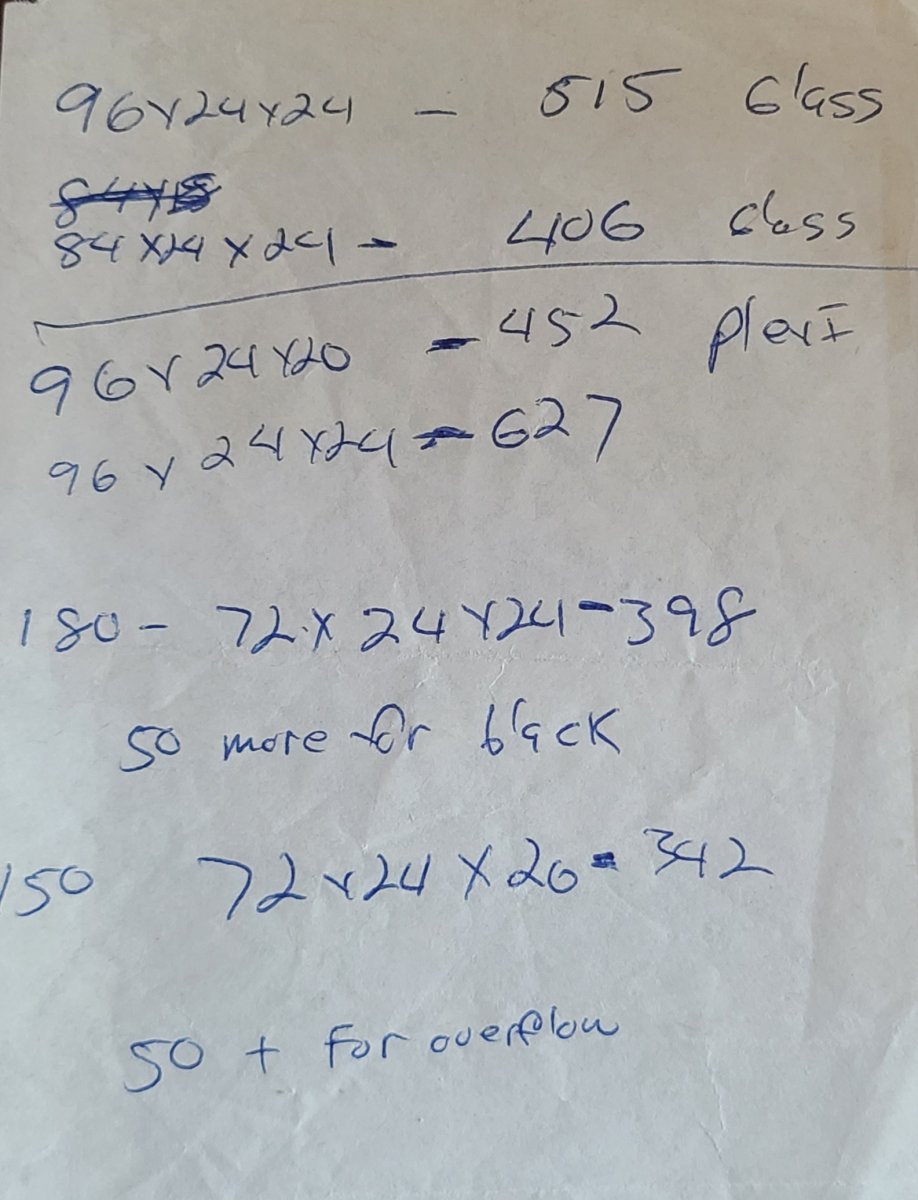 96x24x24 - 515 Glass
84x18
84x24x24 - 406 Glass
96x24x20 - 452 plexI
96x24x24 - 627
180 - 72x24x24 - 398
50 more for black
150 72x24x20 - 342
50 + For overflow